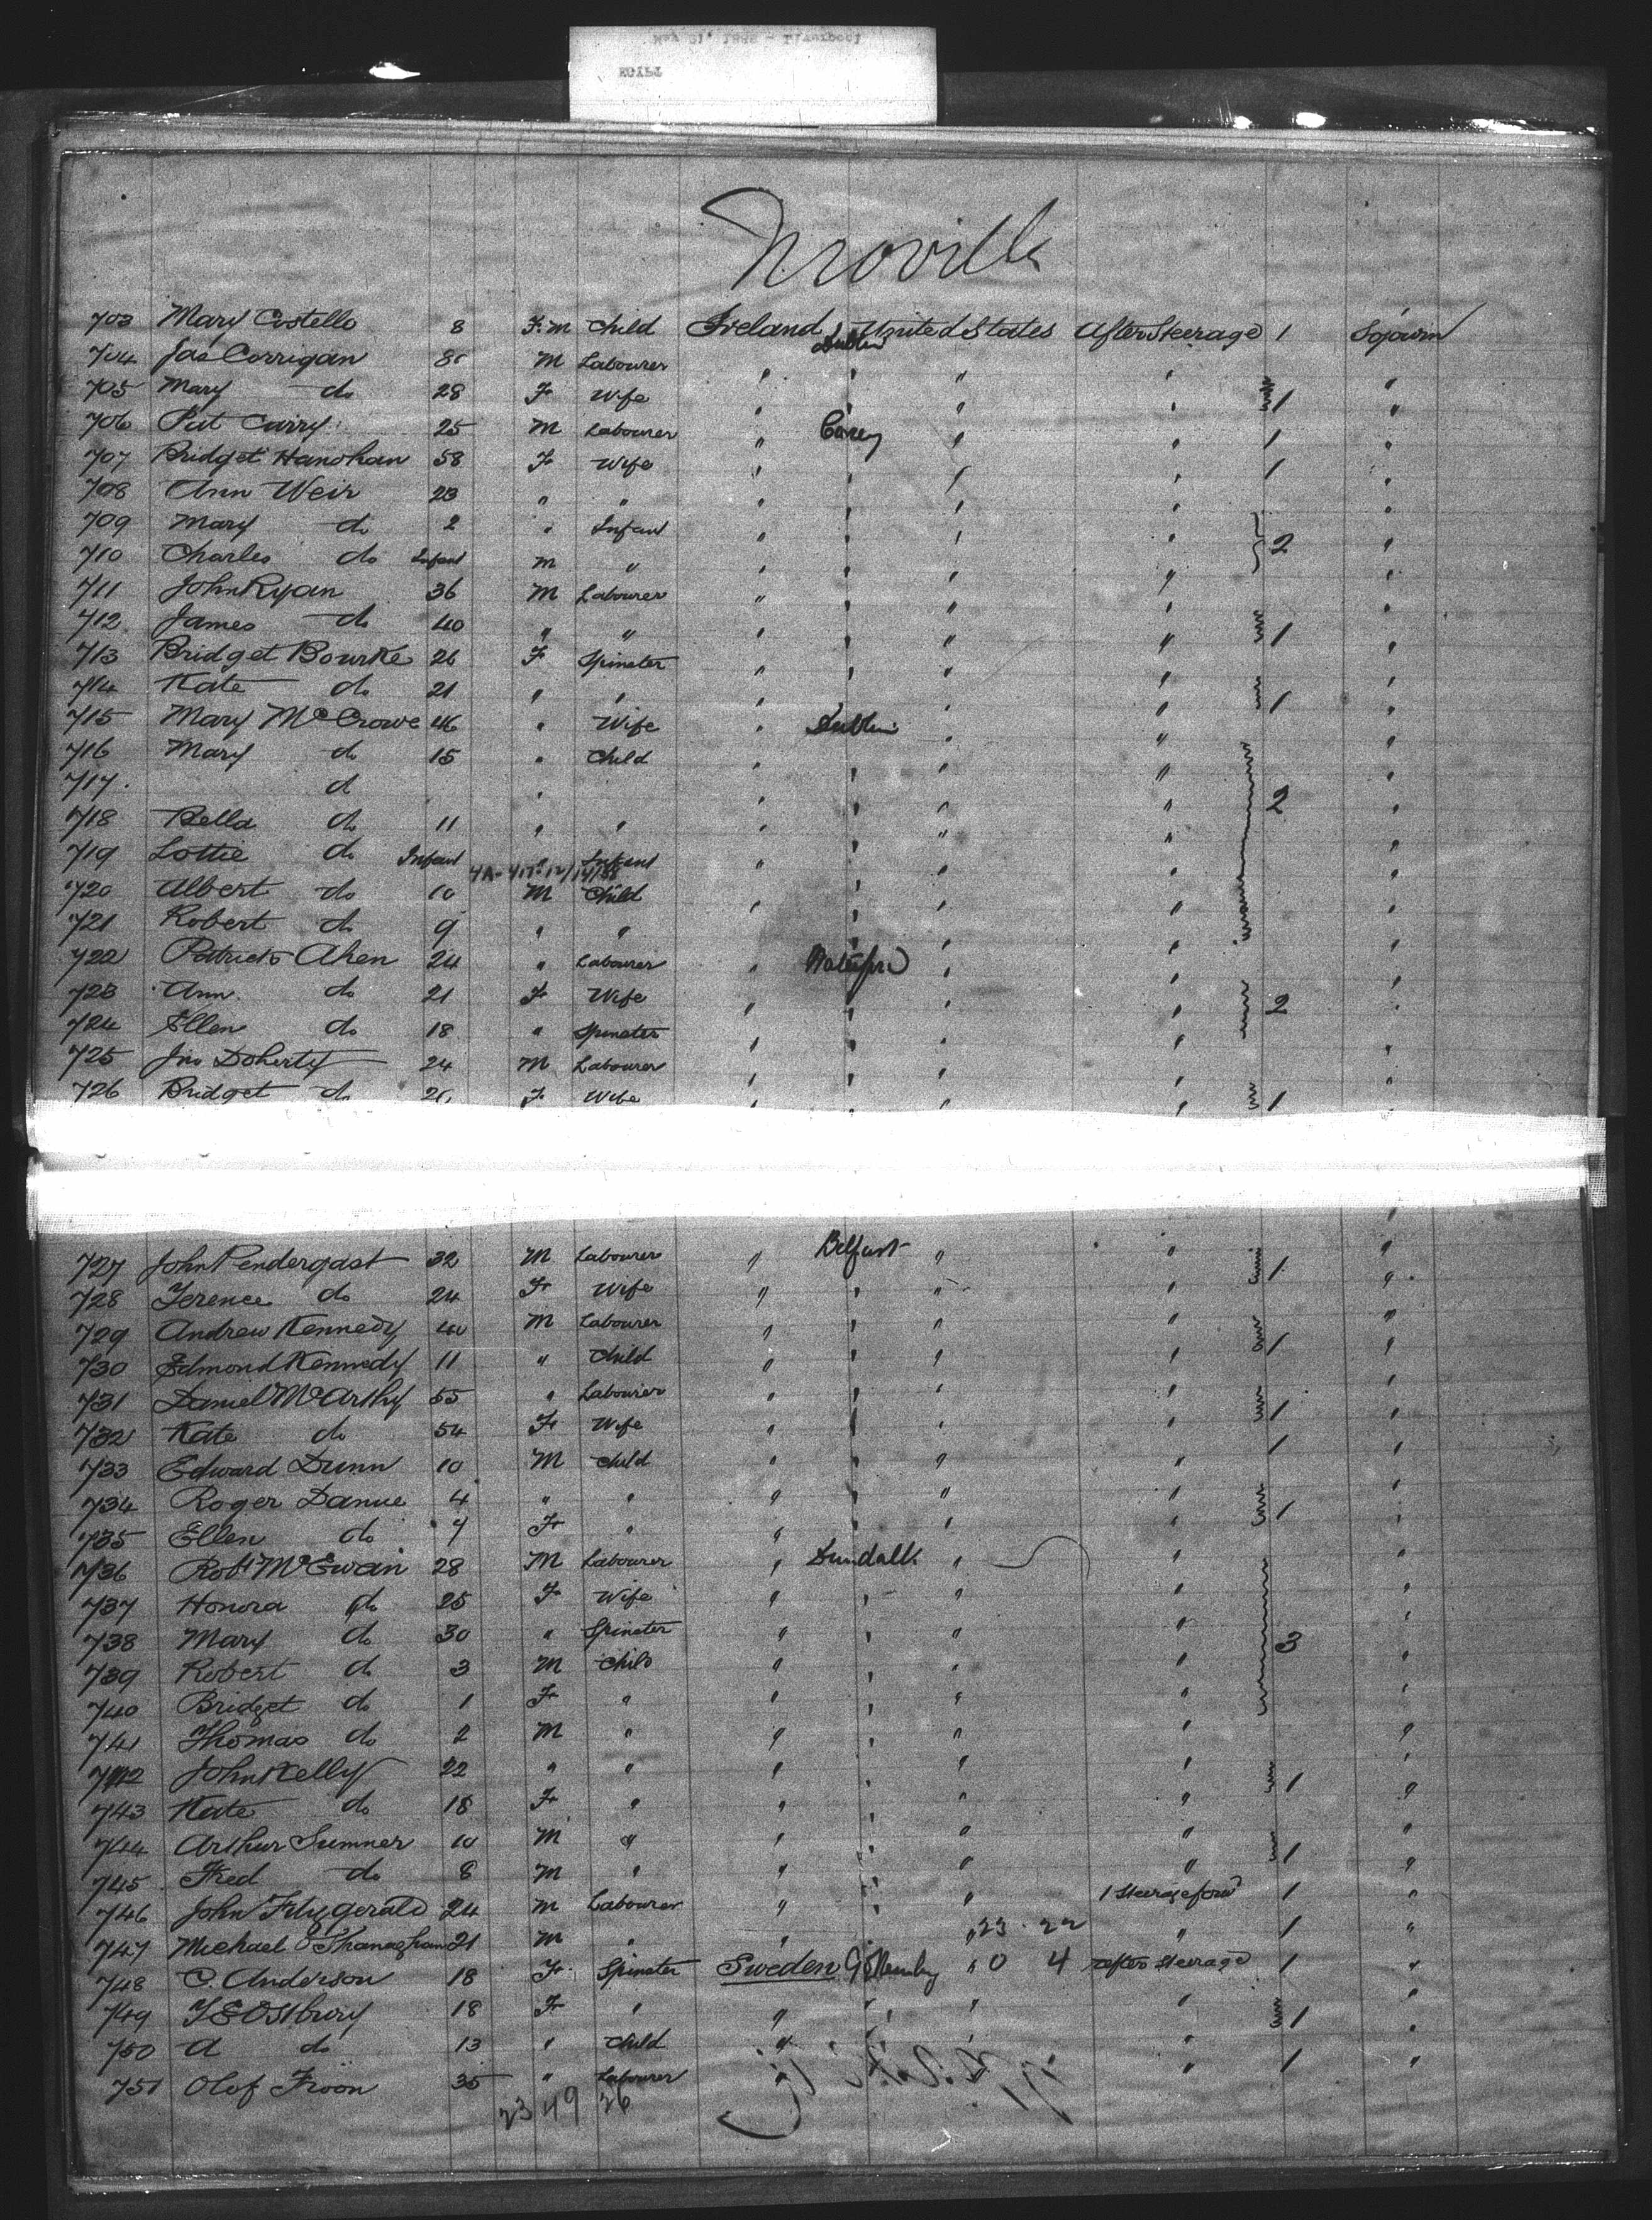 Moville
703 Mary Costello 8 F. M Child Ireland Dublin United States After Steerage 1 Sojourn
704 Jas Corrigan M Labourer " " " " "
705 Mary do 28 F Wife " " " " 1 "
706 Pat Curry 25 M Labourer " " " 1 "
707 Bridget Hanohan 58 F Wife " " " " 1 "
708 Ann Weir 23 " " " " " " "
709 Mary do 2 " Infant " " " " 2 "
710 Charles do Infant M " " " " " "
711 John Ryan 36 M Labourer " " " " "
712 James do 40 " " " " " " 1 "
713 Bridget Bourke 26 F Spinster " " " " "
714 Kate do 21 " " " " " " 1 "
715 Mary McCrowe 46 " Wife " Dublin " " "
716 Mary do 15 " Child " " " " "
717 d " " " " " 2 "
718 Bella do 11 " " " " " " "
719 Lottie do Infant " Infant " " " " "
720 Albert do 10 M Child " " " " "
721 Robert do 9 " " " " " "
722 Patrick Ahen 24 " Labourer " " " "
723 Ann do 21 F Wife " " " " 2 "
724 Ellen do 18 " Spinster " " " " "
725 Jno Doherty 24 M Labourer " " " " "
726 Bridget do F Wife " " " 1 "
727 John Pendergast 32 M Labourer " Belfast " " 1 "
728 Terence do 24 F Wife " " " " "
729 Andrew Kennedy 40 M Labourer " " " " "
730 Edmond Kennedy 11 " Child " " " " 1 "
731 Daniel McArthy 55 " Labourer " " " " "
732 Kate do 54 F Wife " " " " 1 "
733 Edward Dunn 10 M Child " " " " 1 "
734 Roger Danue 4 " " " " " " 1 "
735 Ellen do 7 F " " " " " "
736 Robt McEwain 28 M Labourer " Dundalk " " "
737 Honora do 25 F Wife " " " " "
738 Mary do 30 " Spinster " " " " 3 "
739 Robert do 3 M Child " " " " "
740 Bridget do 1 F " " " " " "
741 Thomas do 2 M " " " " " "
742 John Kelly 22 " " " " " " 1 "
743 Kate do 18 F " " " " " "
744 Arthur Sumner 10 M " " " " " 1 "
745 Fred do 8 M " " " " " "
746 John Fitzgerald 24 M Labourer " " " 1 "
747 Michael O'Shanaghan 21 M " " " " 23 22 " 1 "
748 C. Anderson 18 F Spinster Sweden " 0 4 After Steerage 1 "
749 18 F " " " " " 1 "
750 A do 13 " Child " " "
751 Olof Froon 35 " Labourer " " 1 "
23 49 26